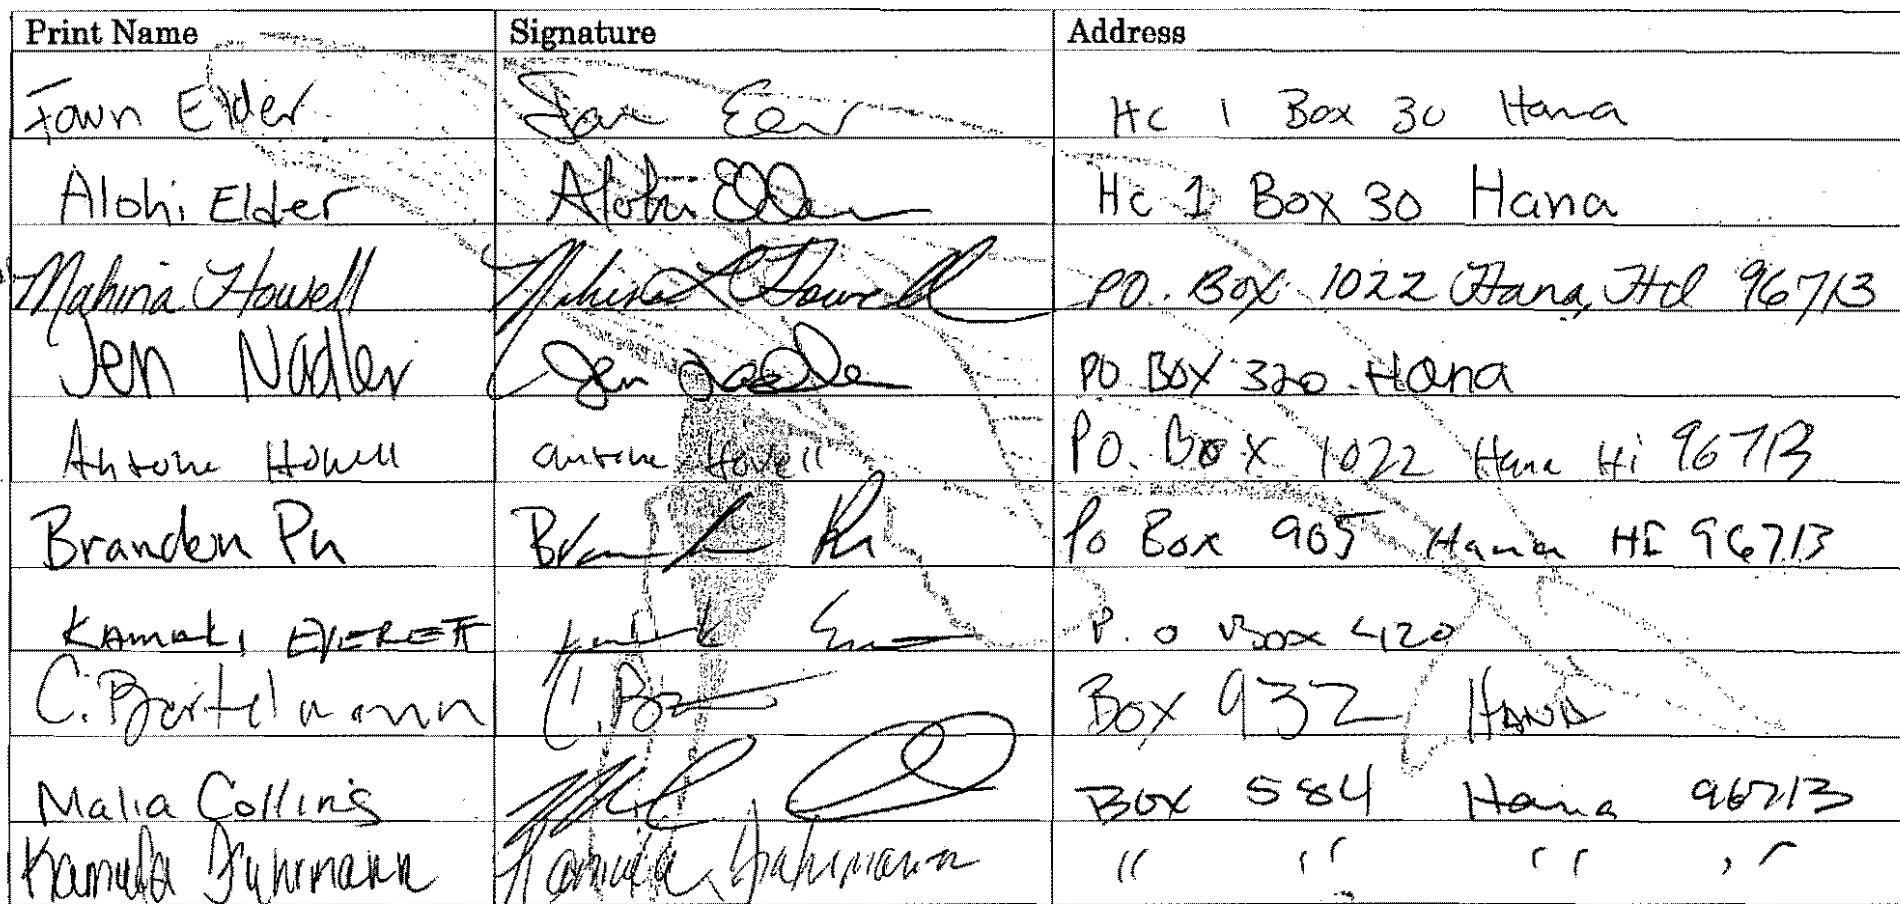 Print Name Signature Address
Fawn Elder HC 1 Box 30 Hana
Alohi Elder Alohi Elder HC 1 Box 30 Hana
Mahina Howell Mahina L Howell P.O. Box 1022 Hana, HI 96713
Jen Nadler Jen Nadler PO Box 320 Hana
Antone Howell Antone Howell P.O. Box 1022 Hana Hi 96713
Brandon Pu Po Box 905 Hana HI 96713
EVERETT P.O Box 420
C. Bartelmann C. Box 932 HANA
Malia Collins Box 584 Hana 96713
Fuhrmann Fuhrmann " " " "